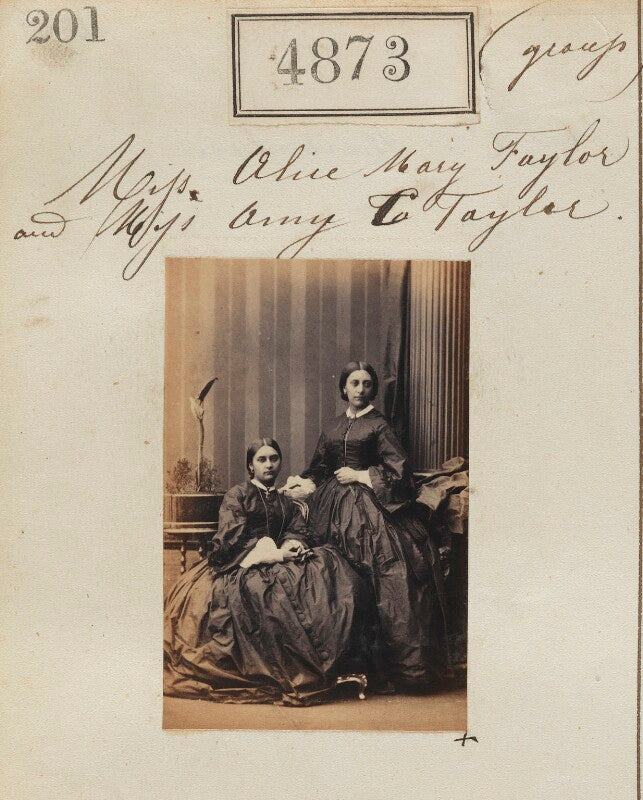 201
4873
(group)
Miss. Alice Mary Taylor
and Miss Amy C Taylor.